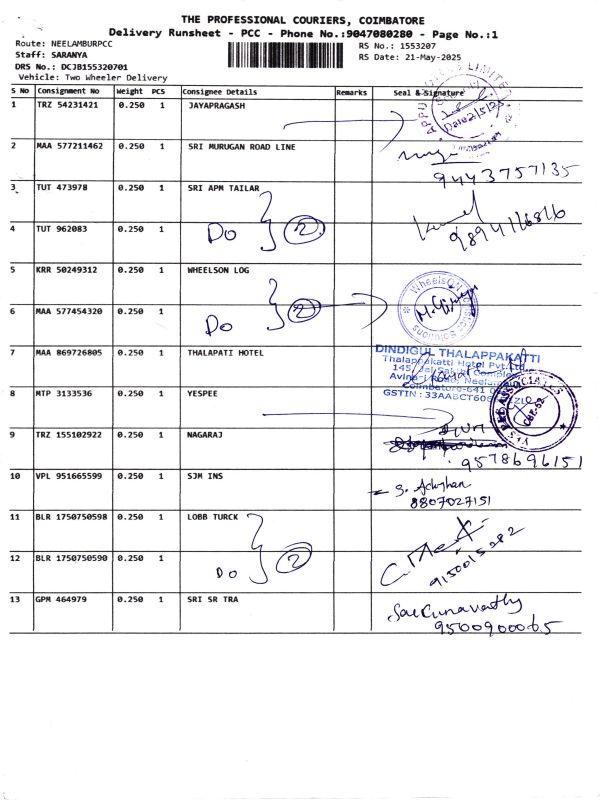 THE PROFESSIONAL COURIERS, COIMBATORE
Delivery Runsheet - PCC - Phone No.:9047080280 - Page No.:1
Route: NEELAMBURPCC
Staff: SARANYA
DRS No.: DCJB155320701
Vehicle: Two Wheeler Delivery
RS No.: 1553207
RS Date: 21-May-2025
S No Consignment No Weight PCS Consignee Details Remarks Seal & Signature
1 TRZ 54231421 0.250 1 JAYAPRAGASH
2 MAA 577211462 0.250 1 SRI MURUGAN ROAD LINE
9443757135
3 TUT 473978 0.250 1 SRI APM TAILAR
4 TUT 962083 0.250 1 Do 2
9894116816
5 KRR 50249312 0.250 1 WHEELSON LOG
6 MAA 577454320 0.250 1 Do 2
7 MAA 869726805 0.250 1 THALAPATI HOTEL
DINDIGUL THALAPPAKATTI
Thalappakatti Hotel Pvt.Ltd.
8 MTP 3133536 0.250 1 YESPEE
YES PEE ASSOCIATES
CBE-62
9 TRZ 155102922 0.250 1 NAGARAJ
9578696151
10 VPL 951665599 0.250 1 SJM INS
8807027151
11 BLR 1750750598 0.250 1 LOBB TURCK
12 BLR 1750750590 0.250 1 Do 2
9150015282
13 GPM 464979 0.250 1 SRI SR TRA
9500900065